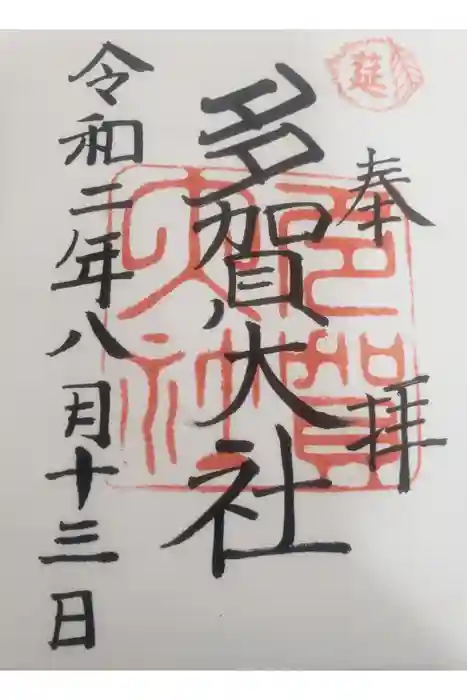 莚
奉拝
多賀大社
多賀大社
令和二年八月十三日